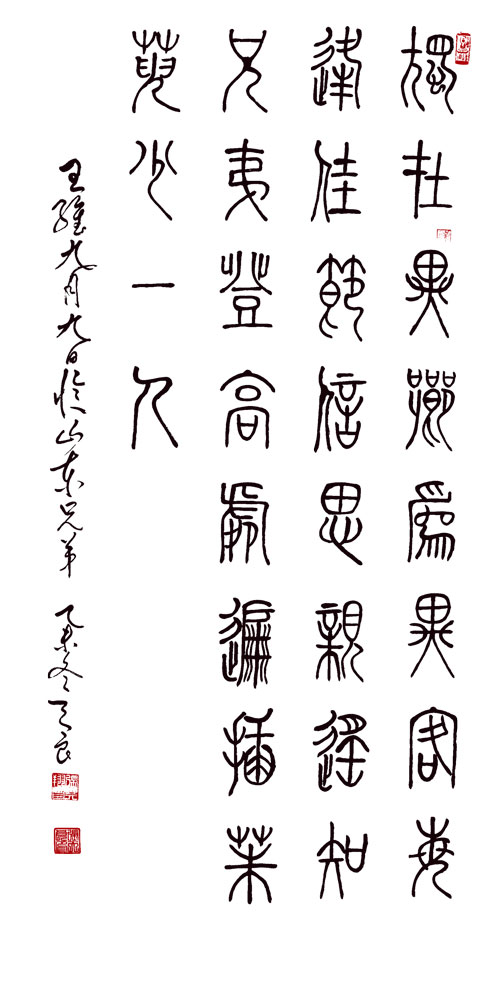 獨在異鄉爲異客每
逢佳節倍思親遙知
兄弟登高處遍插茱
萸少一人
王維九月九日憶山東兄弟 乙未冬天良